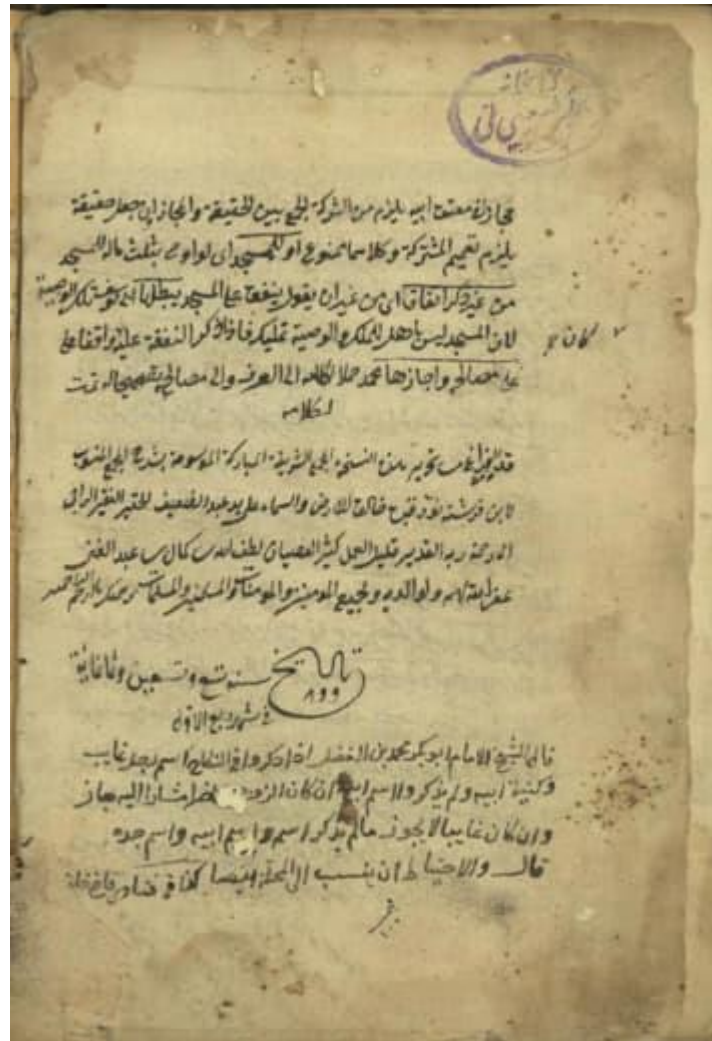 مجازا في معتق ابيه يلزم من الشركة الجمع بين الحقيقة والمجاز ان جعل حقيقة
يلزم تعميم المشترك وكلاهما ممنوع او للمسجد اى لو اوصى بثلث ماله للمسجد
من غير ذكر انفاق اى من غير ان يقول ينفق على المسجد يبطلها ابو يوسف تلك الوصية
لان المسجد ليس باهل للملك والوصية تمليك فاذا ذكر النفقة عليه واقفا على
على مصالحه واجازها محمد حملا لكلامه الى العرف والى مصالحه تصحيحا له تمت
لكلامه
كان
قد وقع تحرير هذه النسخة الشريفة المباركة الموسومة بشرح المجمع المنسوب
لابن فرشته بتوفيق خالق الارض والسماء على يد عبد الضعيف الحقير الفقير الراجى
الى رحمة ربه القدير قليل العمل كثير العصيان لطف الله بن كمال بن عبد الغنى
غفر الله له ولوالديه ولجميع المومنين والمومنات والمسلمين والمسلمات برحمتك يا ارحم الراحمين
تاريخ سنة تسع وتسعين وثمانمائة
٨٩٩
فى شهر ربيع الاول
قال الشيخ الامام ابو بكر محمد بن الفضل اذا ذكروا فى النكاح اسم رجل غايب
وكنية ابيه ولم يذكروا اسم ابيه ان كان الزوج حاضرا مشارا اليه جاز
وان كان غايبا لا يجوز مالم يذكر اسمه واسم ابيه واسم جده
قال والاحتياط ان ينسب الى المحلة ايضا كذا فى فتاوى قاضيخان